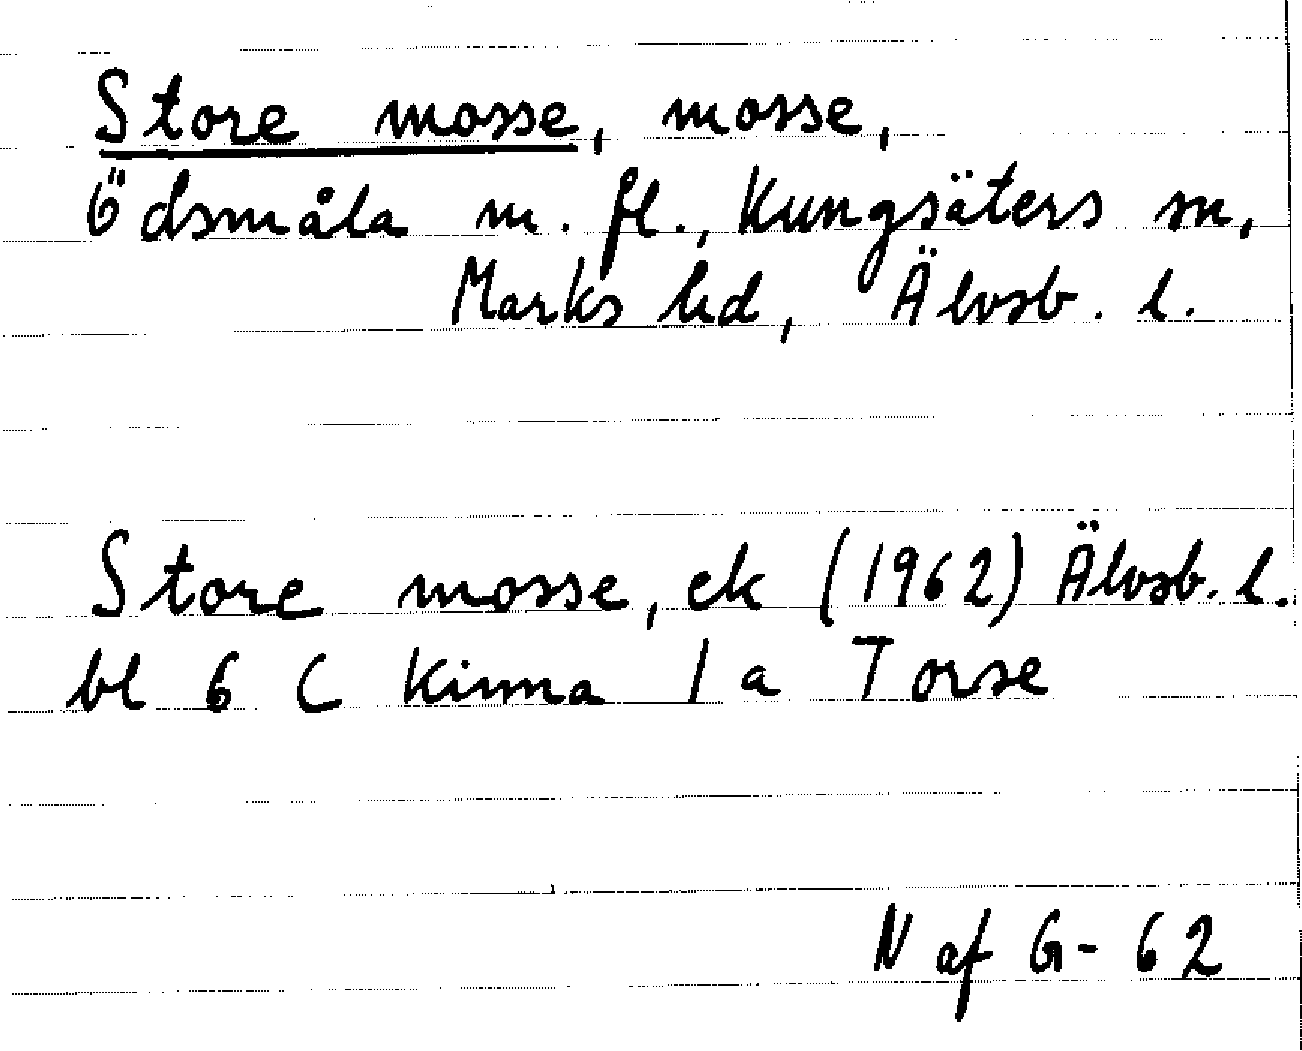 Store mosse, mosse,
Ödsmåla m. fl., Kungsäters sn,
Marks hd, Älvsb. l.
Store mosse, ek (1962) Älvsb. l.
bl 6 C Kinna 1 a Torse
N af G-62